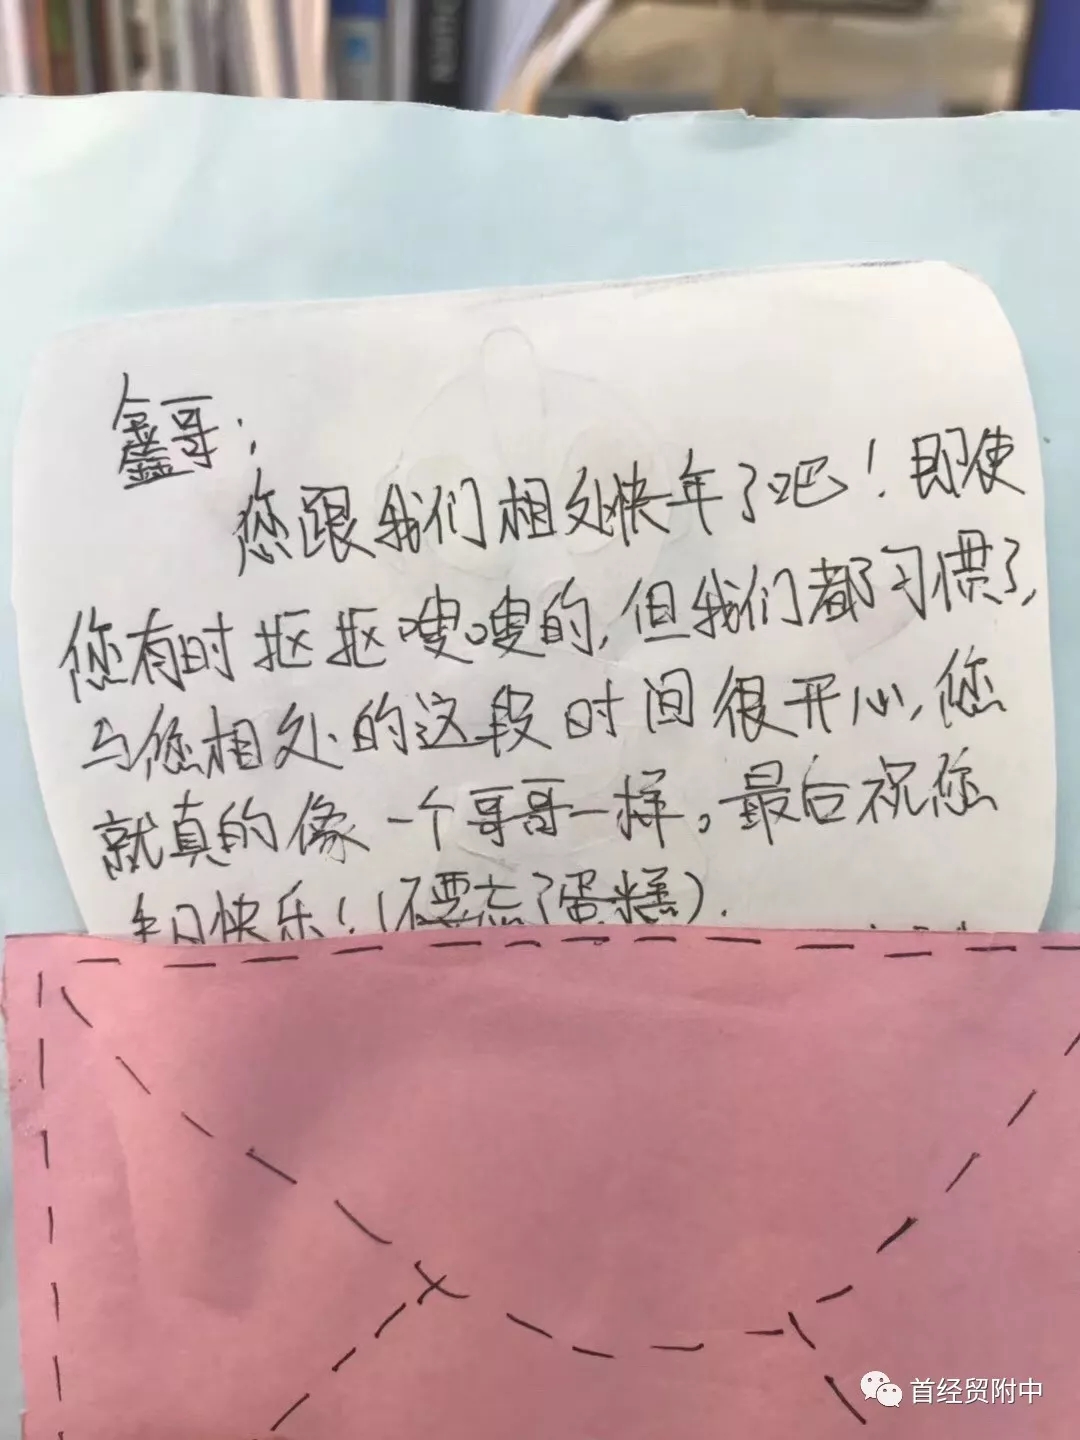 鑫哥：
您跟我们相处快年了吧！即使
您有时抠抠嗖嗖的，但我们都习惯了，
与您相处的这段时间很开心，您
就真的像一个哥哥一样。最后祝您
生日快乐！（不要忘了蛋糕）.
首经贸附中